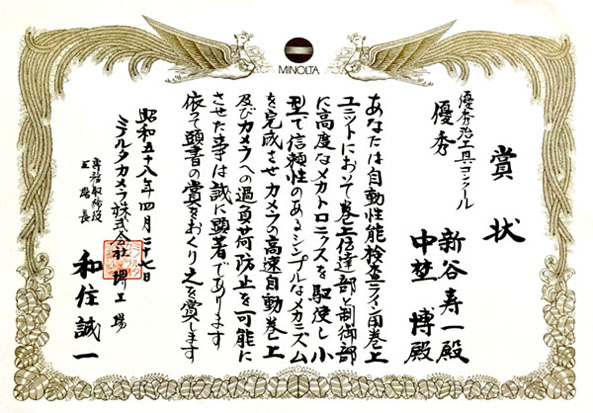 MINOLTA
賞状
優秀治工具コンクール
優秀
新谷寿一殿
中埜博殿
あなたは自動性能検査ライン用巻上
ユニットにおいて巻上伝達部と制御部
に高度なメカトロニクスを駆使し小
型で信頼性のあるシンプルなメカニズム
を完成させカメラの高速自動巻上
及びカメラへの過負荷防止を可能に
させた事は誠に顕著であります
依って頭書の賞をおくり之を賞します
昭和五十八年四月二十七日
ミノルタカメラ株式会社堺工場
専務取締役
工場長
和住誠一